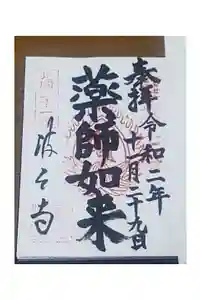 奉拝 令和二年
十一月二十九日
薬師如来